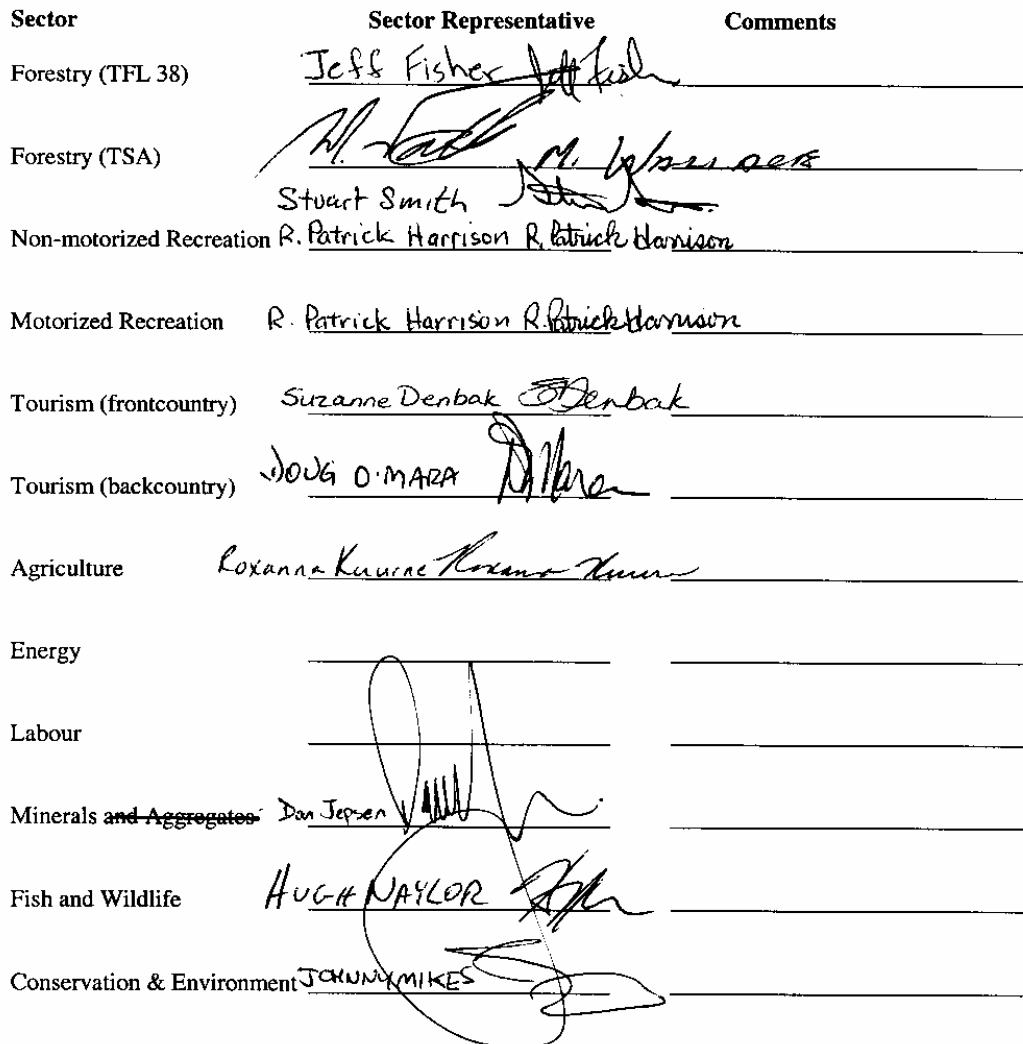 Sector Sector Representative Comments
Forestry (TFL 38) Jeff Fisher Jeff Fish
Forestry (TSA) M.
Stuart Smith
Non-motorized Recreation R. Patrick Harrison R. Patrick Harrison
Motorized Recreation R. Patrick Harrison R. Patrick Harrison
Tourism (frontcountry) Suzanne Denbak SDenbak
Tourism (backcountry) DOUG O'MARA
Agriculture Roxanna Kuurne Roxanna
Energy
Labour
Minerals and Aggregates Dan Jepsen
Fish and Wildlife HUGH NAYLOR
Conservation & Environment JOHNNY MIKES